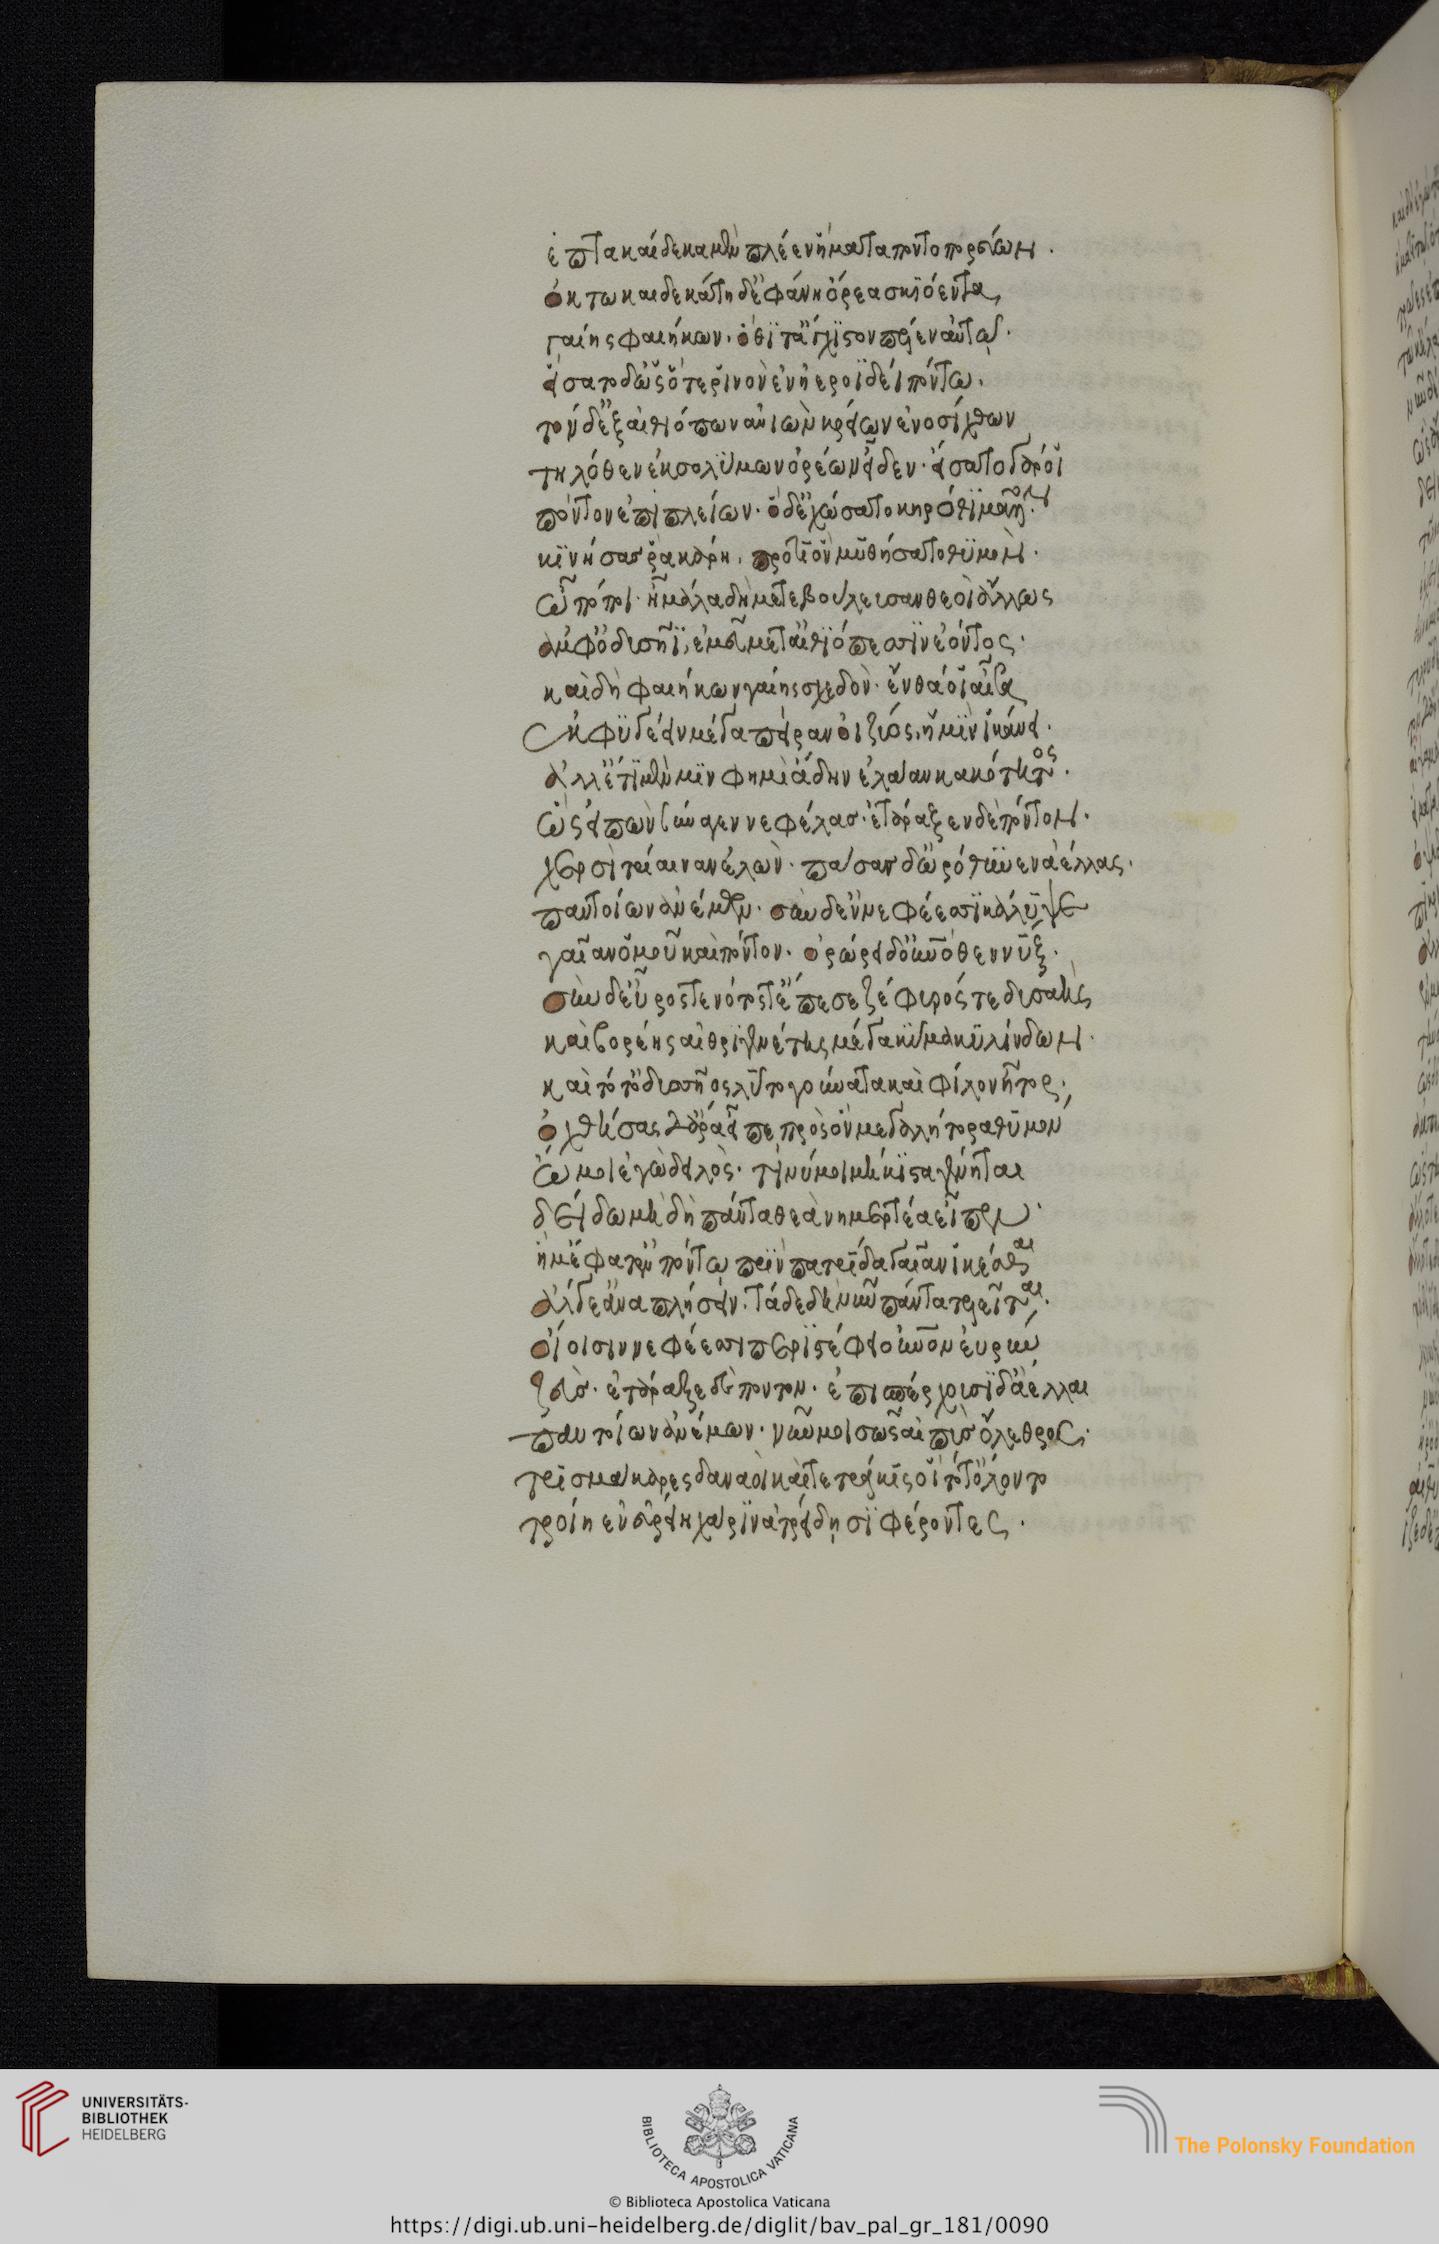 ἑπτακαίδεκα μὲν πλέεν ἤματα ποντοπορεύων.
ὀκτωκαιδεκάτη δ' ἐφάνη ὄρεα σκιόεντα,
γαίης φαιήκων. ὅθι τ' ἄγχιστον πέλεν αὐτῶ.
εἴσατο δ' ὡς ὅτε ῥινὸν ἐν ἠεροϊδέϊ πόντω.
τὸν δ' ἐξ αἰθιόπων ἀνιὼν κρείων ἐνοσίχθων
τηλόθεν ἐκ σολύμων ὀρέων εἶδεν. εἴσατο γάρ οἱ
πόντον ἐπιπλείων. ὁ δ' ἐχώσατο κηρόθι μᾶλλον.
κινήσας ῥα κάρη. προτὶ ὃν μυθήσατο θυμόν.
ὢ πόποι. ἦ μάλα δὴ μετεβούλευσαν θεοὶ ἄλλως
ἀμφ' ὀδυσῆϊ, ἐμεῖο μετ' αἰθιόπεσσιν ἐόντος.
καὶ δὴ φαιήκων γαίης σχεδὸν. ἔνθά οἱ αἶσα
ἐκφυγέειν μέγα πεῖραρ ὀϊζύος, ἥ μιν ἱκάνει.
ἀλλ' ἔτι μέν μίν φημι ἅδην ἐλάαν κακότητος.
ὣς εἰπὼν σύναγεν νεφέλας. ἐτάραξεν δὲ πόντον.
χερσὶ τρίαιναν ἑλὼν. πάσας δ' ὀρόθυνεν ἀέλλας.
παντοίων ἀνέμων. σὺν δὲ νεφέεσσι κάλυψε
γαῖαν ὁμοῦ καὶ πόντον. ὀρώρει δ' οὐρανόθεν νύξ.
σὺν δ' εὖρός τε νότος τ' ἔπεσε ζέφυρός τε δυσαὴς
καὶ βορέης αἰθρηγενέτης μέγα κῦμα κυλίνδων.
καὶ τότ' ὀδυσσῆος λύτο γούνατα καὶ φίλον ἦτορ,
ὀχθήσας δ' ἄρα εἶπε πρὸς ὃν μεγαλήτορα θυμόν
ὤ μοι ἐγὼ δειλὸς. τί νύ μοι μήκιστα γένηται
δείδω μὴ δὴ πάντα θεὰ νημερτέα εἶπεν.
ἥ μ' ἔφατ' ἐν πόντω πρὶν πατρίδα γαῖαν ἱκέσθαι
ἄλγε' ἀναπλήσειν. τάδε δὴ νῦν πάντα τελεῖται.
οἵοισιν νεφέεσσι περιστέφει οὐρανὸν εὐρύν
ζεύς. ἐτάραξε δὲ πόντον. ἐπισπέρχουσι δ' ἄελλαι
παντοίων ἀνέμων. νῦν μοι σῶς αἰπὺς ὄλεθρος.
τρὶς μάκαρες δαναοὶ καὶ τετράκις οἳ τότ' ὄλοντο
τροίη ἐν εὐρείη χάριν ἀτρείδησι φέροντες.
UNIVERSITÄTS-
BIBLIOTHEK
HEIDELBERG
BIBLIOTECA APOSTOLICA VATICANA
© Biblioteca Apostolica Vaticana
The Polonsky Foundation
https://digi.ub.uni-heidelberg.de/diglit/bav_pal_gr_181/0090